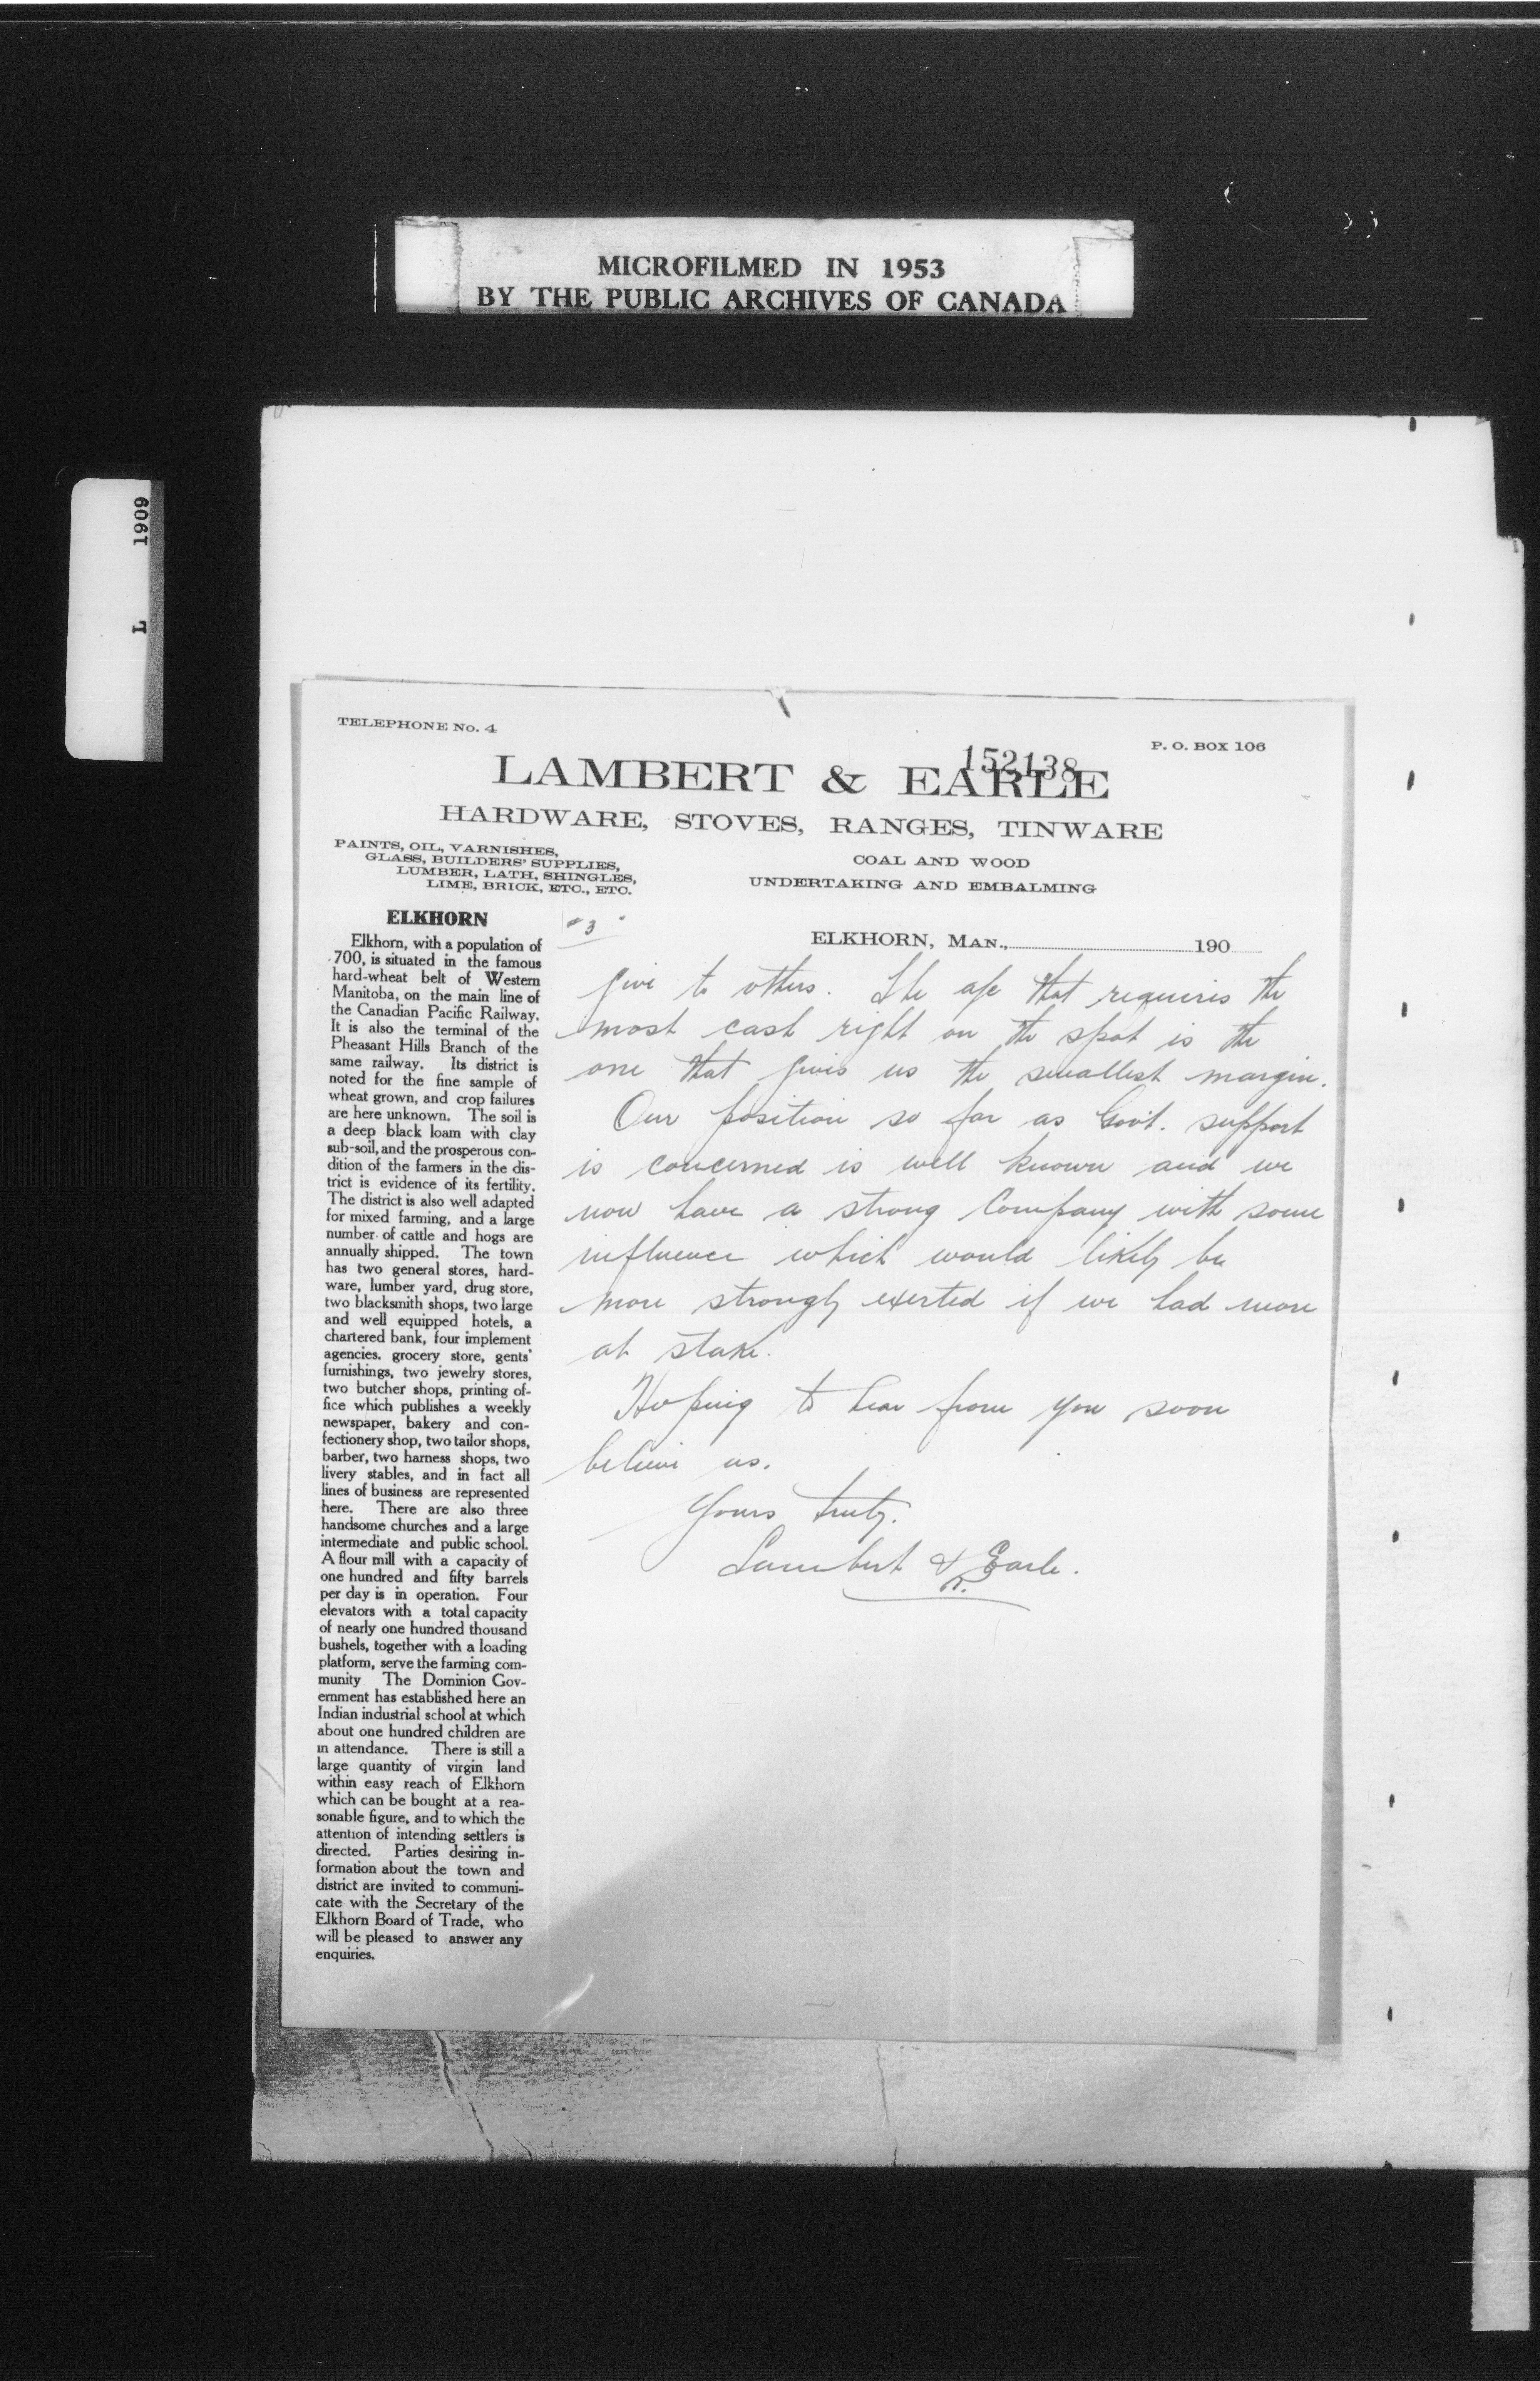 MICROFILMED IN 1953
BY THE PUBLIC ARCHIVES OF CANADA
L 1909
TELEPHONE No. 4
P. O. BOX 106
152138
LAMBERT & EARLE
HARDWARE, STOVES, RANGES, TINWARE
PAINTS, OIL, VARNISHES,
GLASS, BUILDERS' SUPPLIES,
LUMBER, LATH, SHINGLES,
LIME, BRICK, ETC., ETC.
COAL AND WOOD
UNDERTAKING AND EMBALMING
ELKHORN
Elkhorn, with a population of
700, is situated in the famous
hard-wheat belt of Western
Manitoba, on the main line of
the Canadian Pacific Railway.
It is also the terminal of the
Pheasant Hills Branch of the
same railway. Its district is
noted for the fine sample of
wheat grown, and crop failures
are here unknown. The soil is
a deep black loam with clay
sub-soil, and the prosperous con-
dition of the farmers in the dis-
trict is evidence of its fertility.
The district is also well adapted
for mixed farming, and a large
number of cattle and hogs are
annually shipped. The town
has two general stores, hard-
ware, lumber yard, drug store,
two blacksmith shops, two large
and well equipped hotels, a
chartered bank, four implement
agencies. grocery store, gents'
furnishings, two jewelry stores,
two butcher shops, printing of-
fice which publishes a weekly
newspaper, bakery and con-
fectionery shop, two tailor shops,
barber, two harness shops, two
livery stables, and in fact all
lines of business are represented
here. There are also three
handsome churches and a large
intermediate and public school.
A flour mill with a capacity of
one hundred and fifty barrels
per day is in operation. Four
elevators with a total capacity
of nearly one hundred thousand
bushels, together with a loading
platform, serve the farming com-
munity The Dominion Gov-
ernment has established here an
Indian industrial school at which
about one hundred children are
in attendance. There is still a
large quantity of virgin land
within easy reach of Elkhorn
which can be bought at a rea-
sonable figure, and to which the
attention of intending settlers is
directed. Parties desiring in-
formation about the town and
district are invited to communi-
cate with the Secretary of the
Elkhorn Board of Trade, who
will be pleased to answer any
enquiries.
"3"
ELKHORN, MAN., 190
give to others. The a/c that requires the
most cash right on the spot is the
one that gives us the smallest margin.
Our position so far as Govt. support
is concerned is well known and we
now have a strong Company with some
influence which would likely be
more strongly exerted if we had more
at stake.
Hoping to hear from you soon
believe us.
Yours truly.
Lambert & Earle.